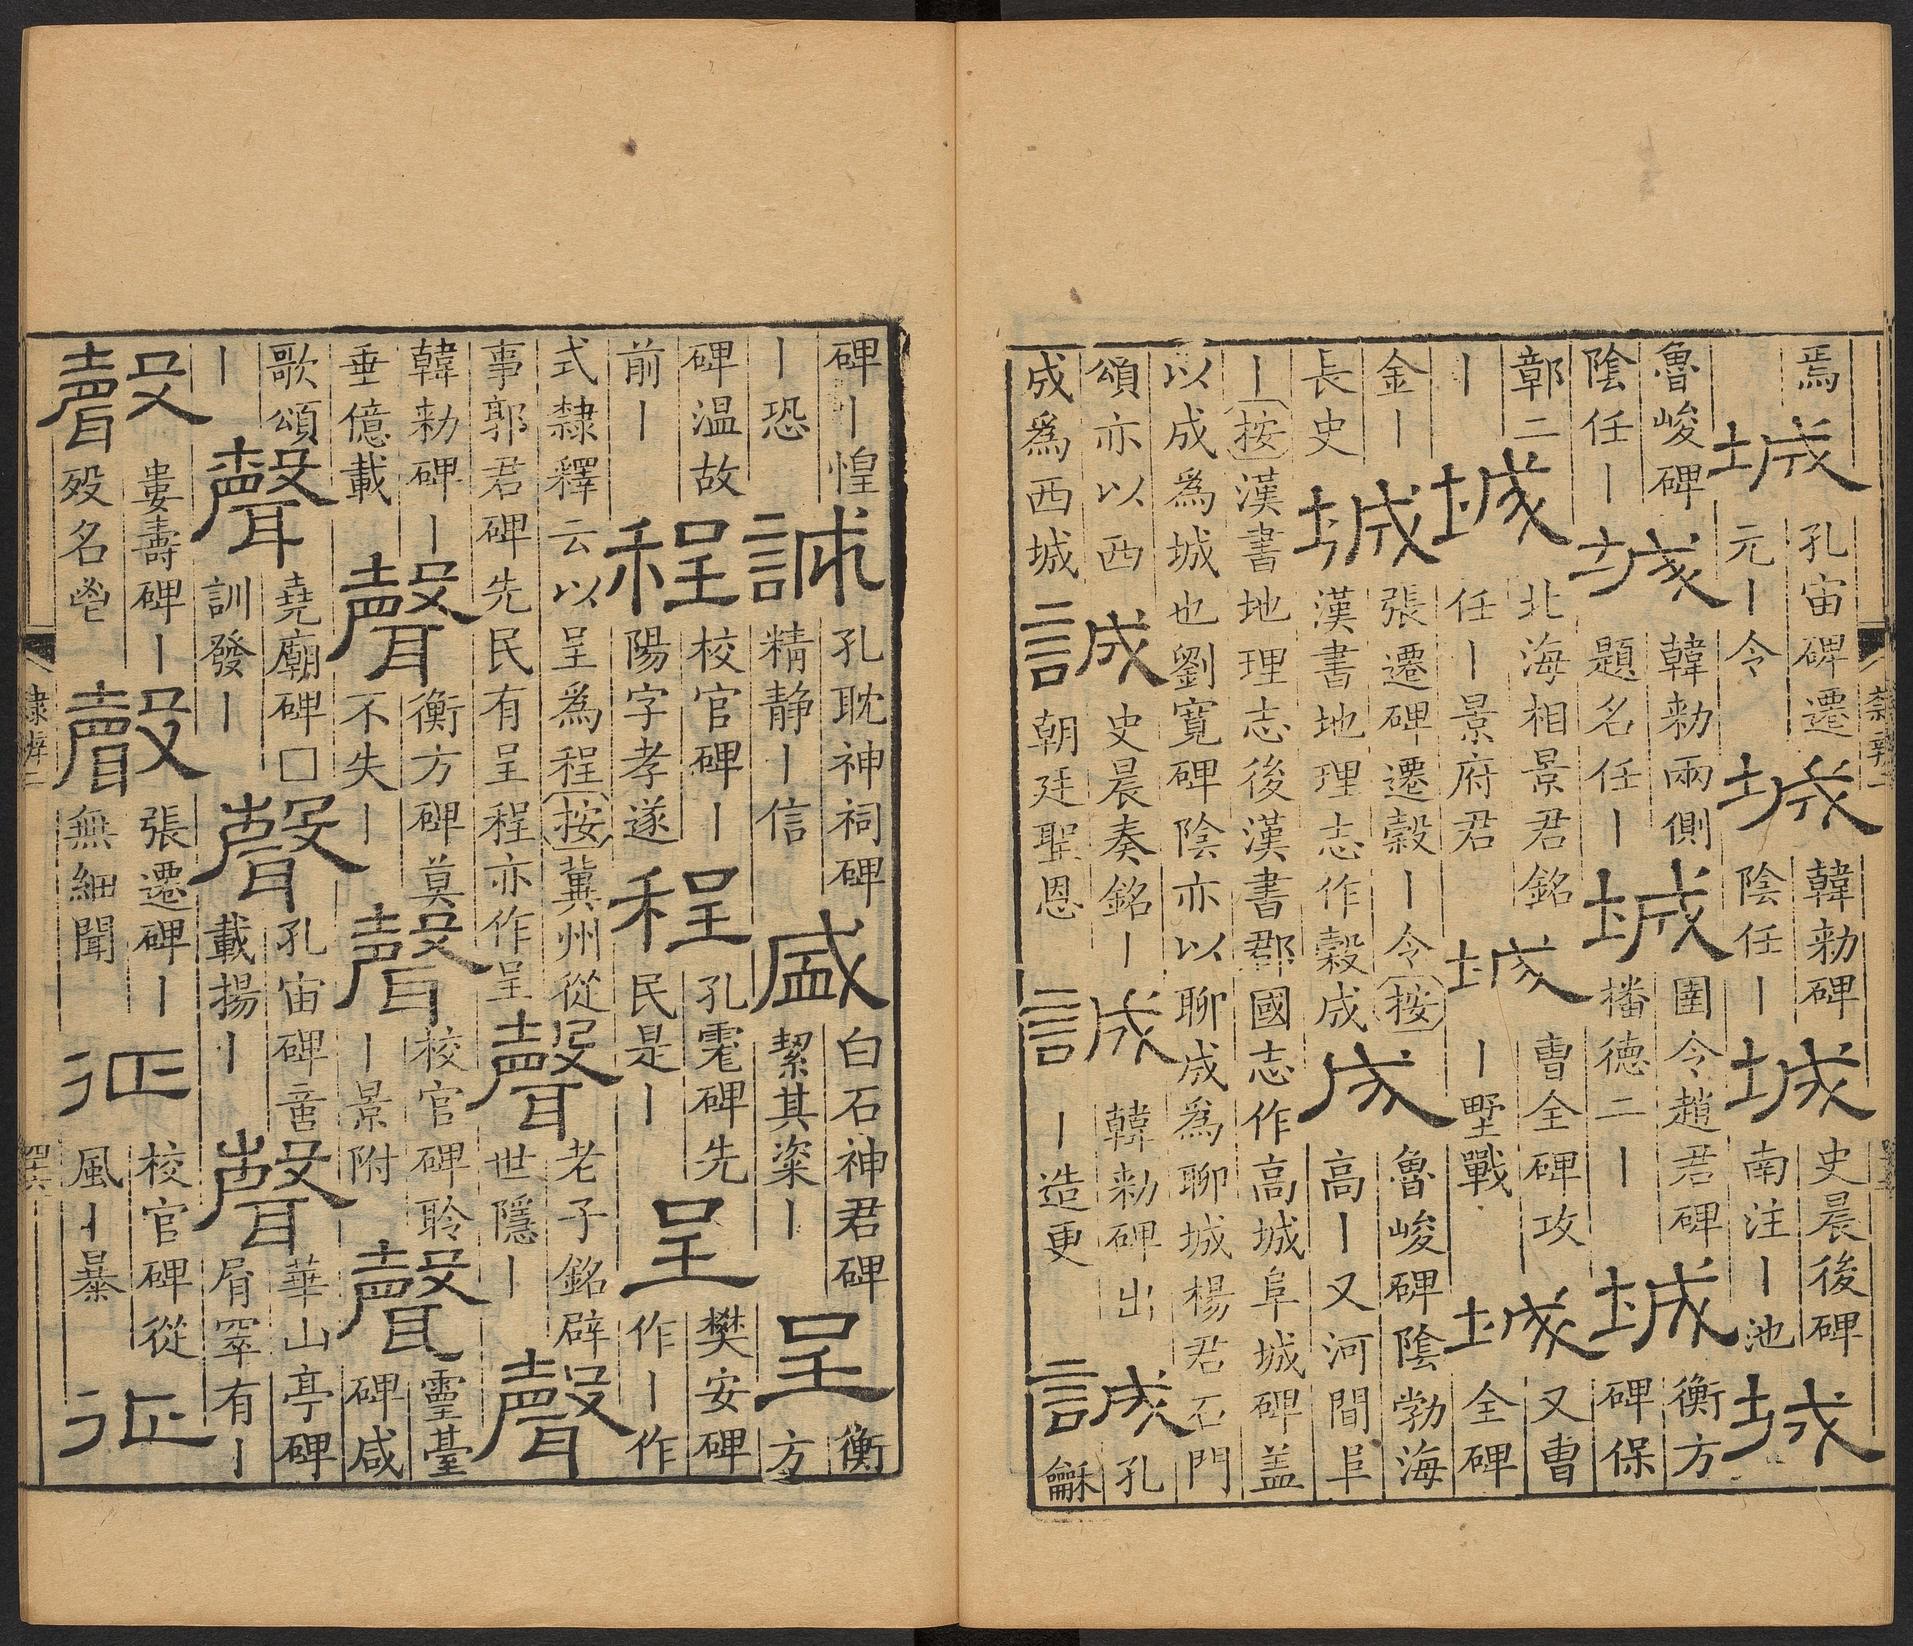 焉城孔宙碑遷元丨令城韓勑碑陰任丨城史晨後碑南注丨池城
魯峻碑陰任丨城韓勑兩側題名任丨城圉令趙君碑播德二丨城衡方碑保
鄣二丨城北海相景君銘任丨景府君城曹全碑攻丨壄戰城又曹全碑
金丨長史城張遷碑遷穀丨令按漢書地理志作穀成成魯峻碑陰勃海高丨又河間阜
丨按漢書地理志後漢書郡國志作高城阜城碑蓋以成爲城也劉寬碑陰亦以聊成爲聊城楊君石門
頌亦以西成爲西城誠史晨奏銘丨朝廷聖恩誠韓勑碑出丨造更誠孔龢
碑丨惶丨恐誠孔耽神祠碑精静丨信盛白石神君碑絜其粢丨呈衡方
碑温故前丨程校官碑丨陽字孝遂程孔碑先民是丨呈樊安碑作丨作
式隸釋云以呈爲程按冀州從事郭君碑先民有呈程亦作呈聲老子銘辟世隱丨聲
韓勑碑丨垂億載聲衡方碑莫不失丨聲校官碑聆丨景附聲靈臺碑咸
歌頌丨聲堯廟碑□訓發丨聲孔宙碑載揚丨聲華山亭碑屑有丨
聲婁壽碑丨歿名聲張遷碑丨無細聞征校官碑從風丨暴征
隸辨二
四六